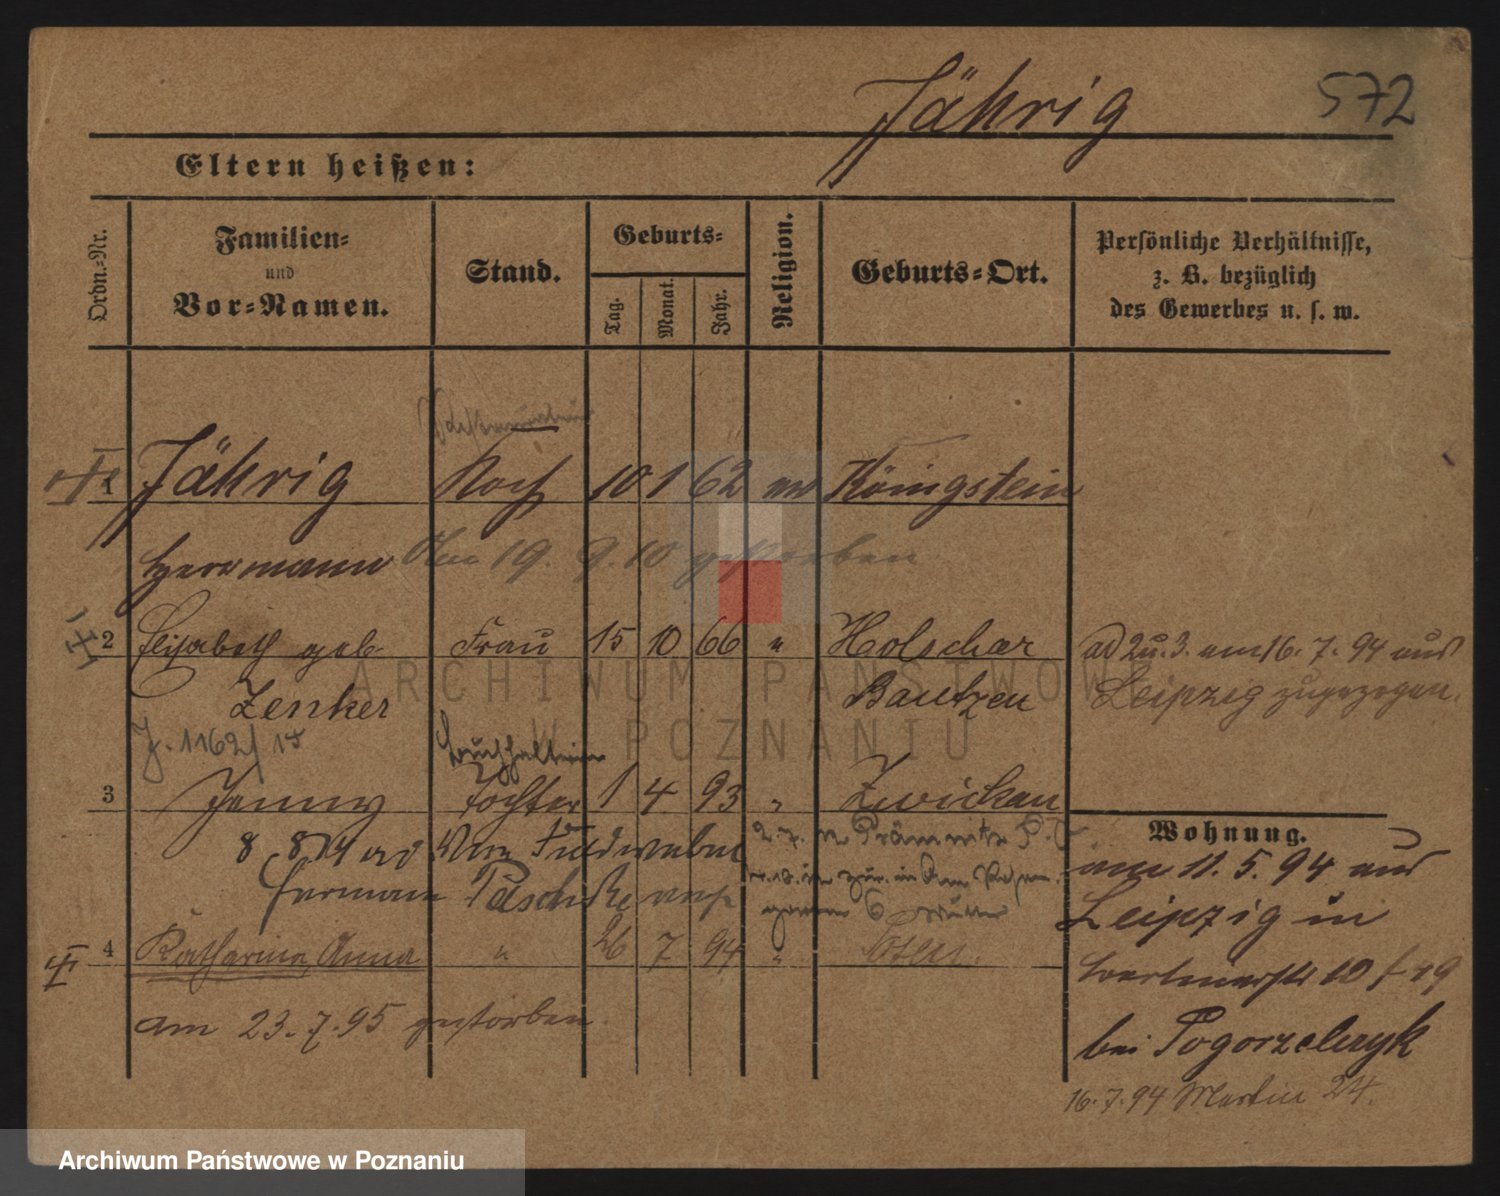 Jährig 572
Eltern heißen:
Ordn.-Nr.
Familien-
und
Vor-Namen.
Stand.
Geburts-
Tag.
Monat.
Jahr.
Religion.
Geburts-Ort.
Persönliche Verhältnisse,
z. B. bezüglich
des Gewerbes u. s. w.
1 Jährig Koch 10 1 62 ev Königstein
Herrmann Am 19. 9. 10 gestorben
2 Elisabeth geb. Frau 15 10 66 " Holschar
Zenker Bautzen
ad 2 u. 3. am 16. 7. 94 aus
Leipzig zugezogen.
J. 1162/15 Buchhalterin
3 Jenny Tochter 1 4 93 " Zwickau
8 8 14
Hermann Paschke
4 Katharina Anna " 26 7 94 " Posen.
am 23. 7. 95 gestorben.
Wohnung.
am 11. 5. 94 aus
Leipzig in
bei Pogorzelczyk
16. 7. 94 Martin 24.
ARCHIWUM PAŃSTWOWE
W POZNANIU
Archiwum Państwowe w Poznaniu